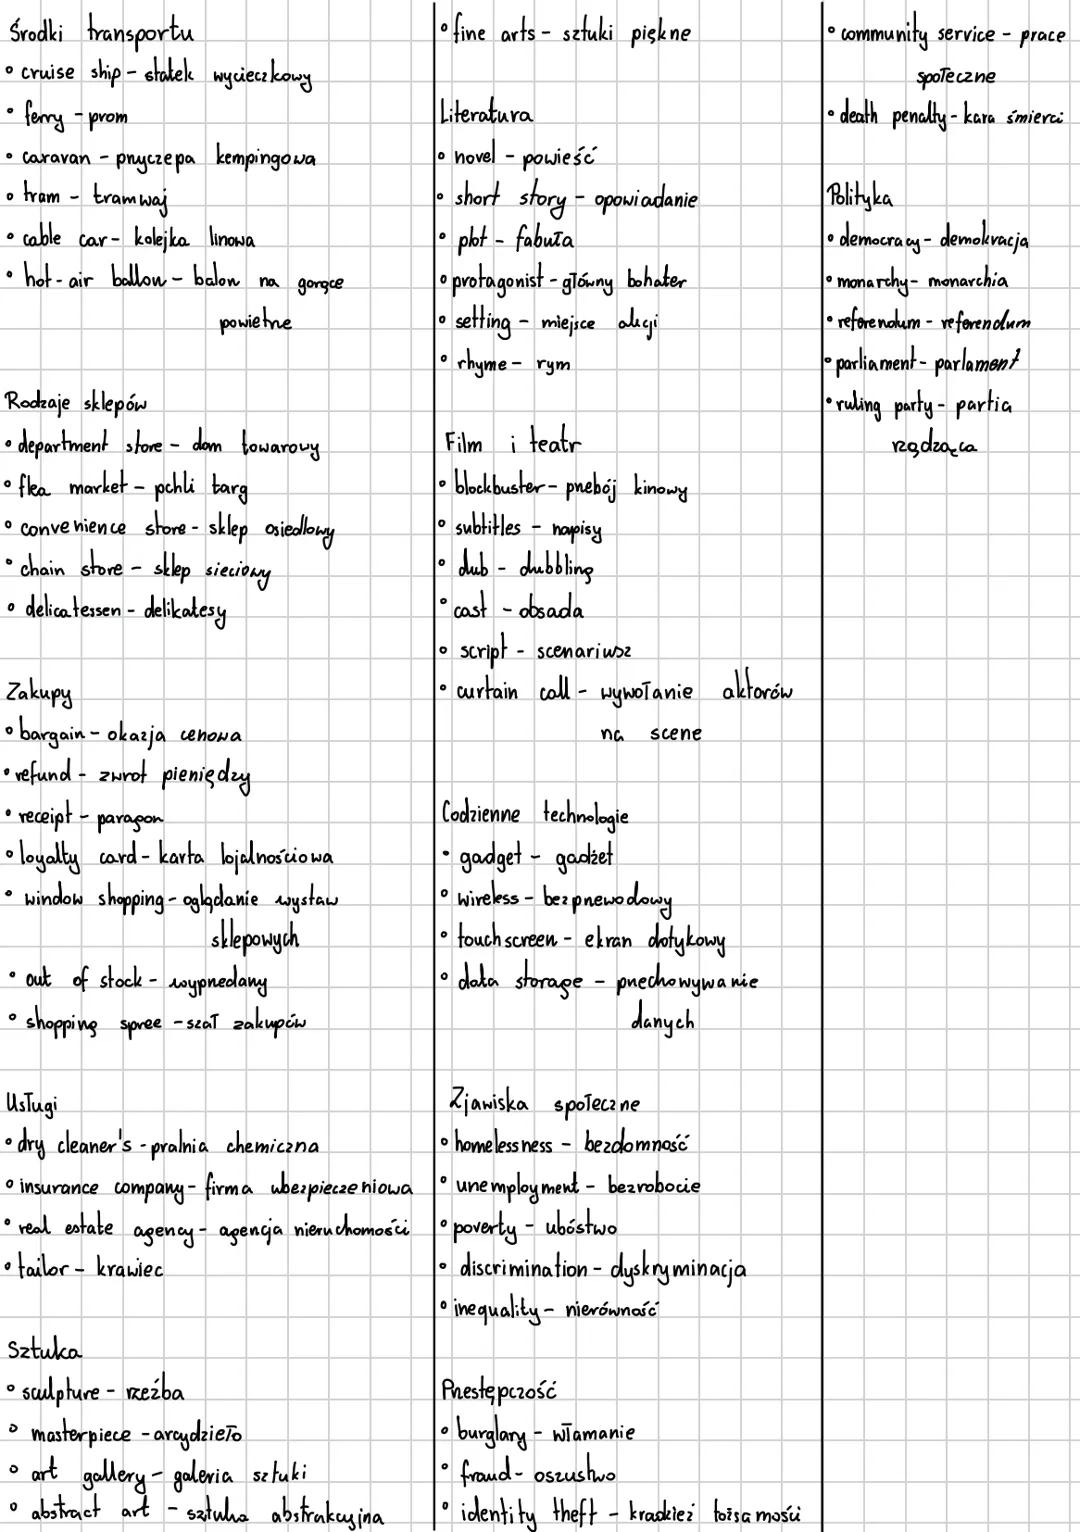 Środki transportu
• cruise ship - statek wycieczkowy
• ferry - prom
• caravan - przyczepa kempingowa
• tram - tramwaj
• cable car - kolejka linowa
• hot-air ballon - balon na gorące
powietrze
Rodzaje sklepów
• department store - dom towarowy
• flea market - pchli targ
• convenience store - sklep osiedlowy
• chain store - sklep sieciowy
• delicatessen - delikatesy
Zakupy
• bargain - okazja cenowa
• refund - zwrot pieniędzy
• receipt - paragon
• loyalty card - karta lojalnościowa
• window shopping - oglądanie wystaw
sklepowych
• out of stock - wyprzedany
• shopping spree - szał zakupów
Usługi
• dry cleaner's - pralnia chemiczna
• insurance company - firma ubezpieczeniowa
• real estate agency - agencja nieruchomości
• tailor - krawiec
Sztuka
• sculpture - rzeźba
• masterpiece - arcydzieło
• art gallery - galeria sztuki
• abstract art - sztuka abstrakcyjna
• fine arts - sztuki piękne
Literatura
• novel - powieść
• short story - opowiadanie
• plot - fabuła
• protagonist - główny bohater
• setting - miejsce akcji
• rhyme - rym
Film i teatr
• blockbuster - przebój kinowy
• subtitles - napisy
• dub - dubbling
• cast - obsada
• script - scenariusz
• curtain call - wywołanie aktorów
na scene
Codzienne technologie
• gadget - gadżet
• wireless - bezprzewodowy
• touch screen - ekran dotykowy
• data storage - przechowywanie
danych
Zjawiska społeczne
• homelessness - bezdomność
• unemployment - bezrobocie
• poverty - ubóstwo
• discrimination - dyskryminacja
• inequality - nierówność
Przestępczość
• burglary - włamanie
• fraud - oszustwo
• identity theft - kradzież tożsamości
• community service - prace
społeczne
• death penalty - kara śmierci
Polityka
• democracy - demokracja
• monarchy - monarchia
• referendum - referendum
• parliament - parlament
• ruling party - partia
rządząca